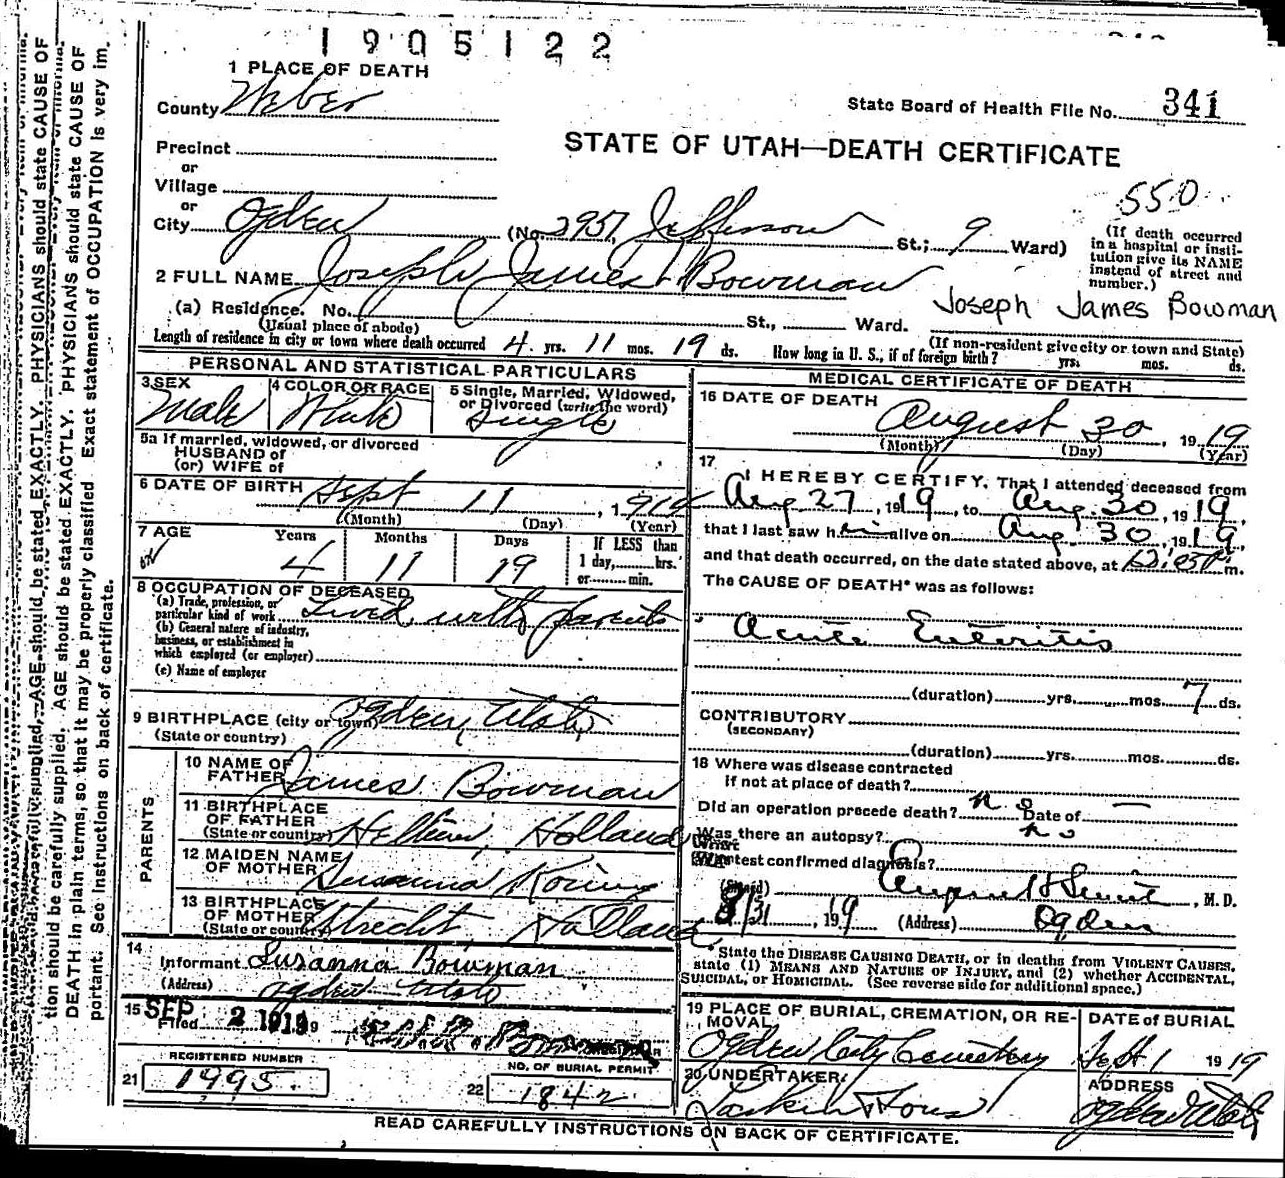 1905122
1 PLACE OF DEATH
County Weber
State Board of Health File No. 341
STATE OF UTAH—DEATH CERTIFICATE
Precinct
or
Village
or
550
City Ogden (No. 2957, Jefferson St.; 9 Ward)
(If death occurred
in a hospital or insti-
tution give its NAME
instead of street and
number.)
2 FULL NAME Joseph James Bowman
Joseph James Bowman
(a) Residence. No. St., Ward.
(Usual place of abode)
(If non-resident give city or town and State)
Length of residence in city or town where death occurred 4 yrs. 11 mos. 19 ds. How long in U. S., if of foreign birth? yrs. mos. ds.
PERSONAL AND STATISTICAL PARTICULARS
3 SEX
Male
4 COLOR OR RACE
White
5 Single, Married, Widowed,
or Divorced (write the word)
Single
5a If married, widowed, or divorced
HUSBAND of
(or) WIFE of
6 DATE OF BIRTH Sept 11, 1914
(Month) (Day) (Year)
7 AGE Years Months Days
4 11 19
If LESS than
1 day, hrs.
or min.
8 OCCUPATION OF DECEASED
(a) Trade, profession, or
particular kind of work Lived with parents
(b) General nature of industry,
business, or establishment in
which employed (or employer)
(c) Name of employer
9 BIRTHPLACE (city or town) Ogden, Utah
(State or country)
PARENTS
10 NAME OF
FATHER James Bowman
11 BIRTHPLACE
OF FATHER
(State or country) Holland
12 MAIDEN NAME
OF MOTHER Susanna
13 BIRTHPLACE
OF MOTHER
(State or country) Utrecht, Holland
14
Informant Susanna Bowman
(Address) Ogden Utah
15 SEP 2 1919
Filed
REGISTERED NUMBER
21 1995.
NO. OF BURIAL PERMIT
22 1842
MEDICAL CERTIFICATE OF DEATH
16 DATE OF DEATH
August 30, 1919
(Month) (Day) (Year)
17
I HEREBY CERTIFY, That I attended deceased from
Aug 27, 1919, to Aug. 30, 1919,
that I last saw him alive on Aug. 30, 1919,
and that death occurred, on the date stated above, at m.
The CAUSE OF DEATH* was as follows:
Acute Enteritis
(duration) yrs. mos. 7 ds.
CONTRIBUTORY
(SECONDARY)
(duration) yrs. mos. ds.
18 Where was disease contracted
if not at place of death?
Did an operation precede death? no Date of —
Was there an autopsy? no
What test confirmed diagnosis?
(Signed) , M. D.
8/31, 1919 (Address) Ogden
State the DISEASE CAUSING DEATH, or in deaths from VIOLENT CAUSES,
state (1) MEANS AND NATURE OF INJURY, and (2) whether ACCIDENTAL,
SUICIDAL, or HOMICIDAL. (See reverse side for additional space.)
19 PLACE OF BURIAL, CREMATION, OR RE-
MOVAL
Ogden City Cemetery
DATE of BURIAL
Sept 1 1919
20 UNDERTAKER
Larkin & Sons
ADDRESS
Ogden Utah
READ CAREFULLY INSTRUCTIONS ON BACK OF CERTIFICATE.
tion should be carefully supplied. AGE should be stated EXACTLY. PHYSICIANS should state CAUSE OF
DEATH in plain terms, so that it may be properly classified. Exact statement of OCCUPATION is very im-
portant. See Instructions on back of certificate.